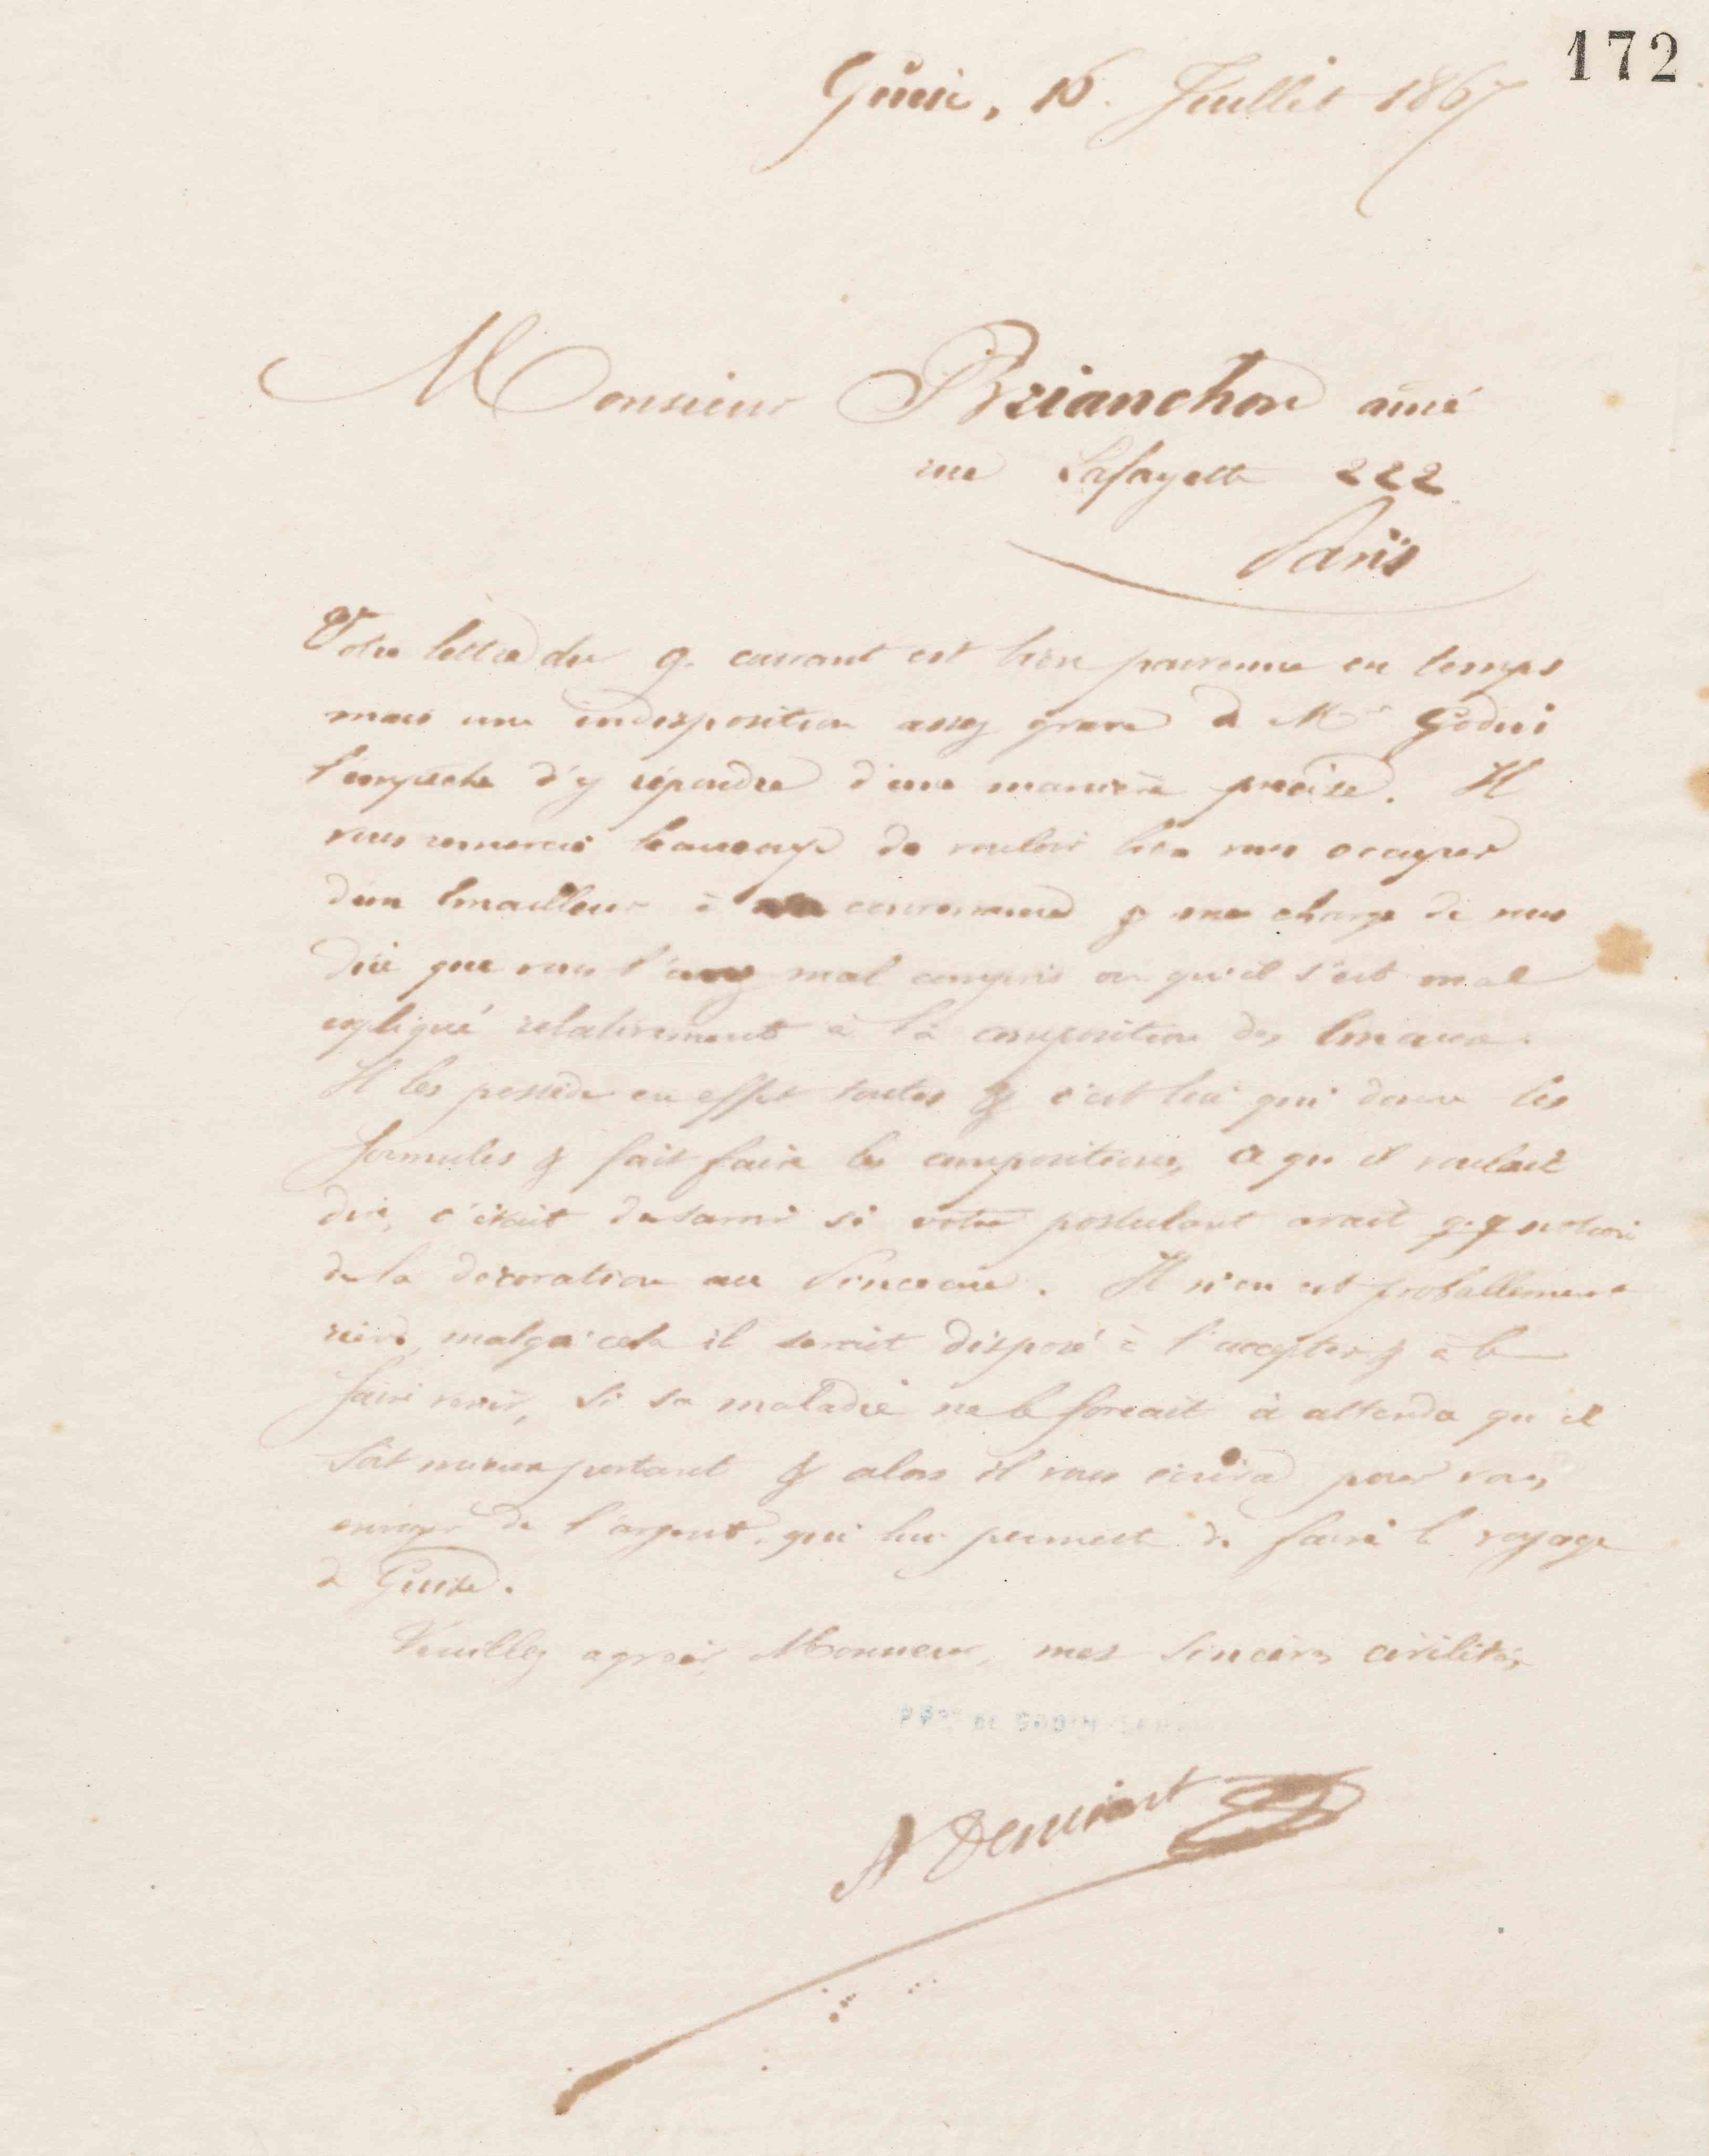 172
Guise, 16 Juillet 1867
Monsieur Brianchon ainé
rue Lafayette 222
Paris
Votre lettre du 9 courant est bien parvenue en temps
mais une indisposition assez grave de Mr Godin
l'empêche d'y répondre d'une manière précise. Il
vous remercie beaucoup de vouloir bien vous occuper
d'un émailleur à convenance & me charge de vous
dire que vous l'avez mal compris ou qu'il s'est mal
expliqué relativement à la composition des émaux.
Il les possède en effet toutes & c'est lui qui donne les
formules & fait faire les compositions, ce qu'il voulait
dire, c'était de savoir si votre postulant avait q.q notion
de la décoration au pinceau. Il n'en est probablement
rien, malgré cela il serait disposé à l'accepter & à le
faire venir, si sa maladie ne le forçait à attendre qu'il
soit mieux portant & alors il vous écrira pour vous
envoyer de l'argent, qui lui permet de faire le voyage
de Guise.
Veuillez agréer, Monsieur, mes sincères civilités
PPon DE GODIN